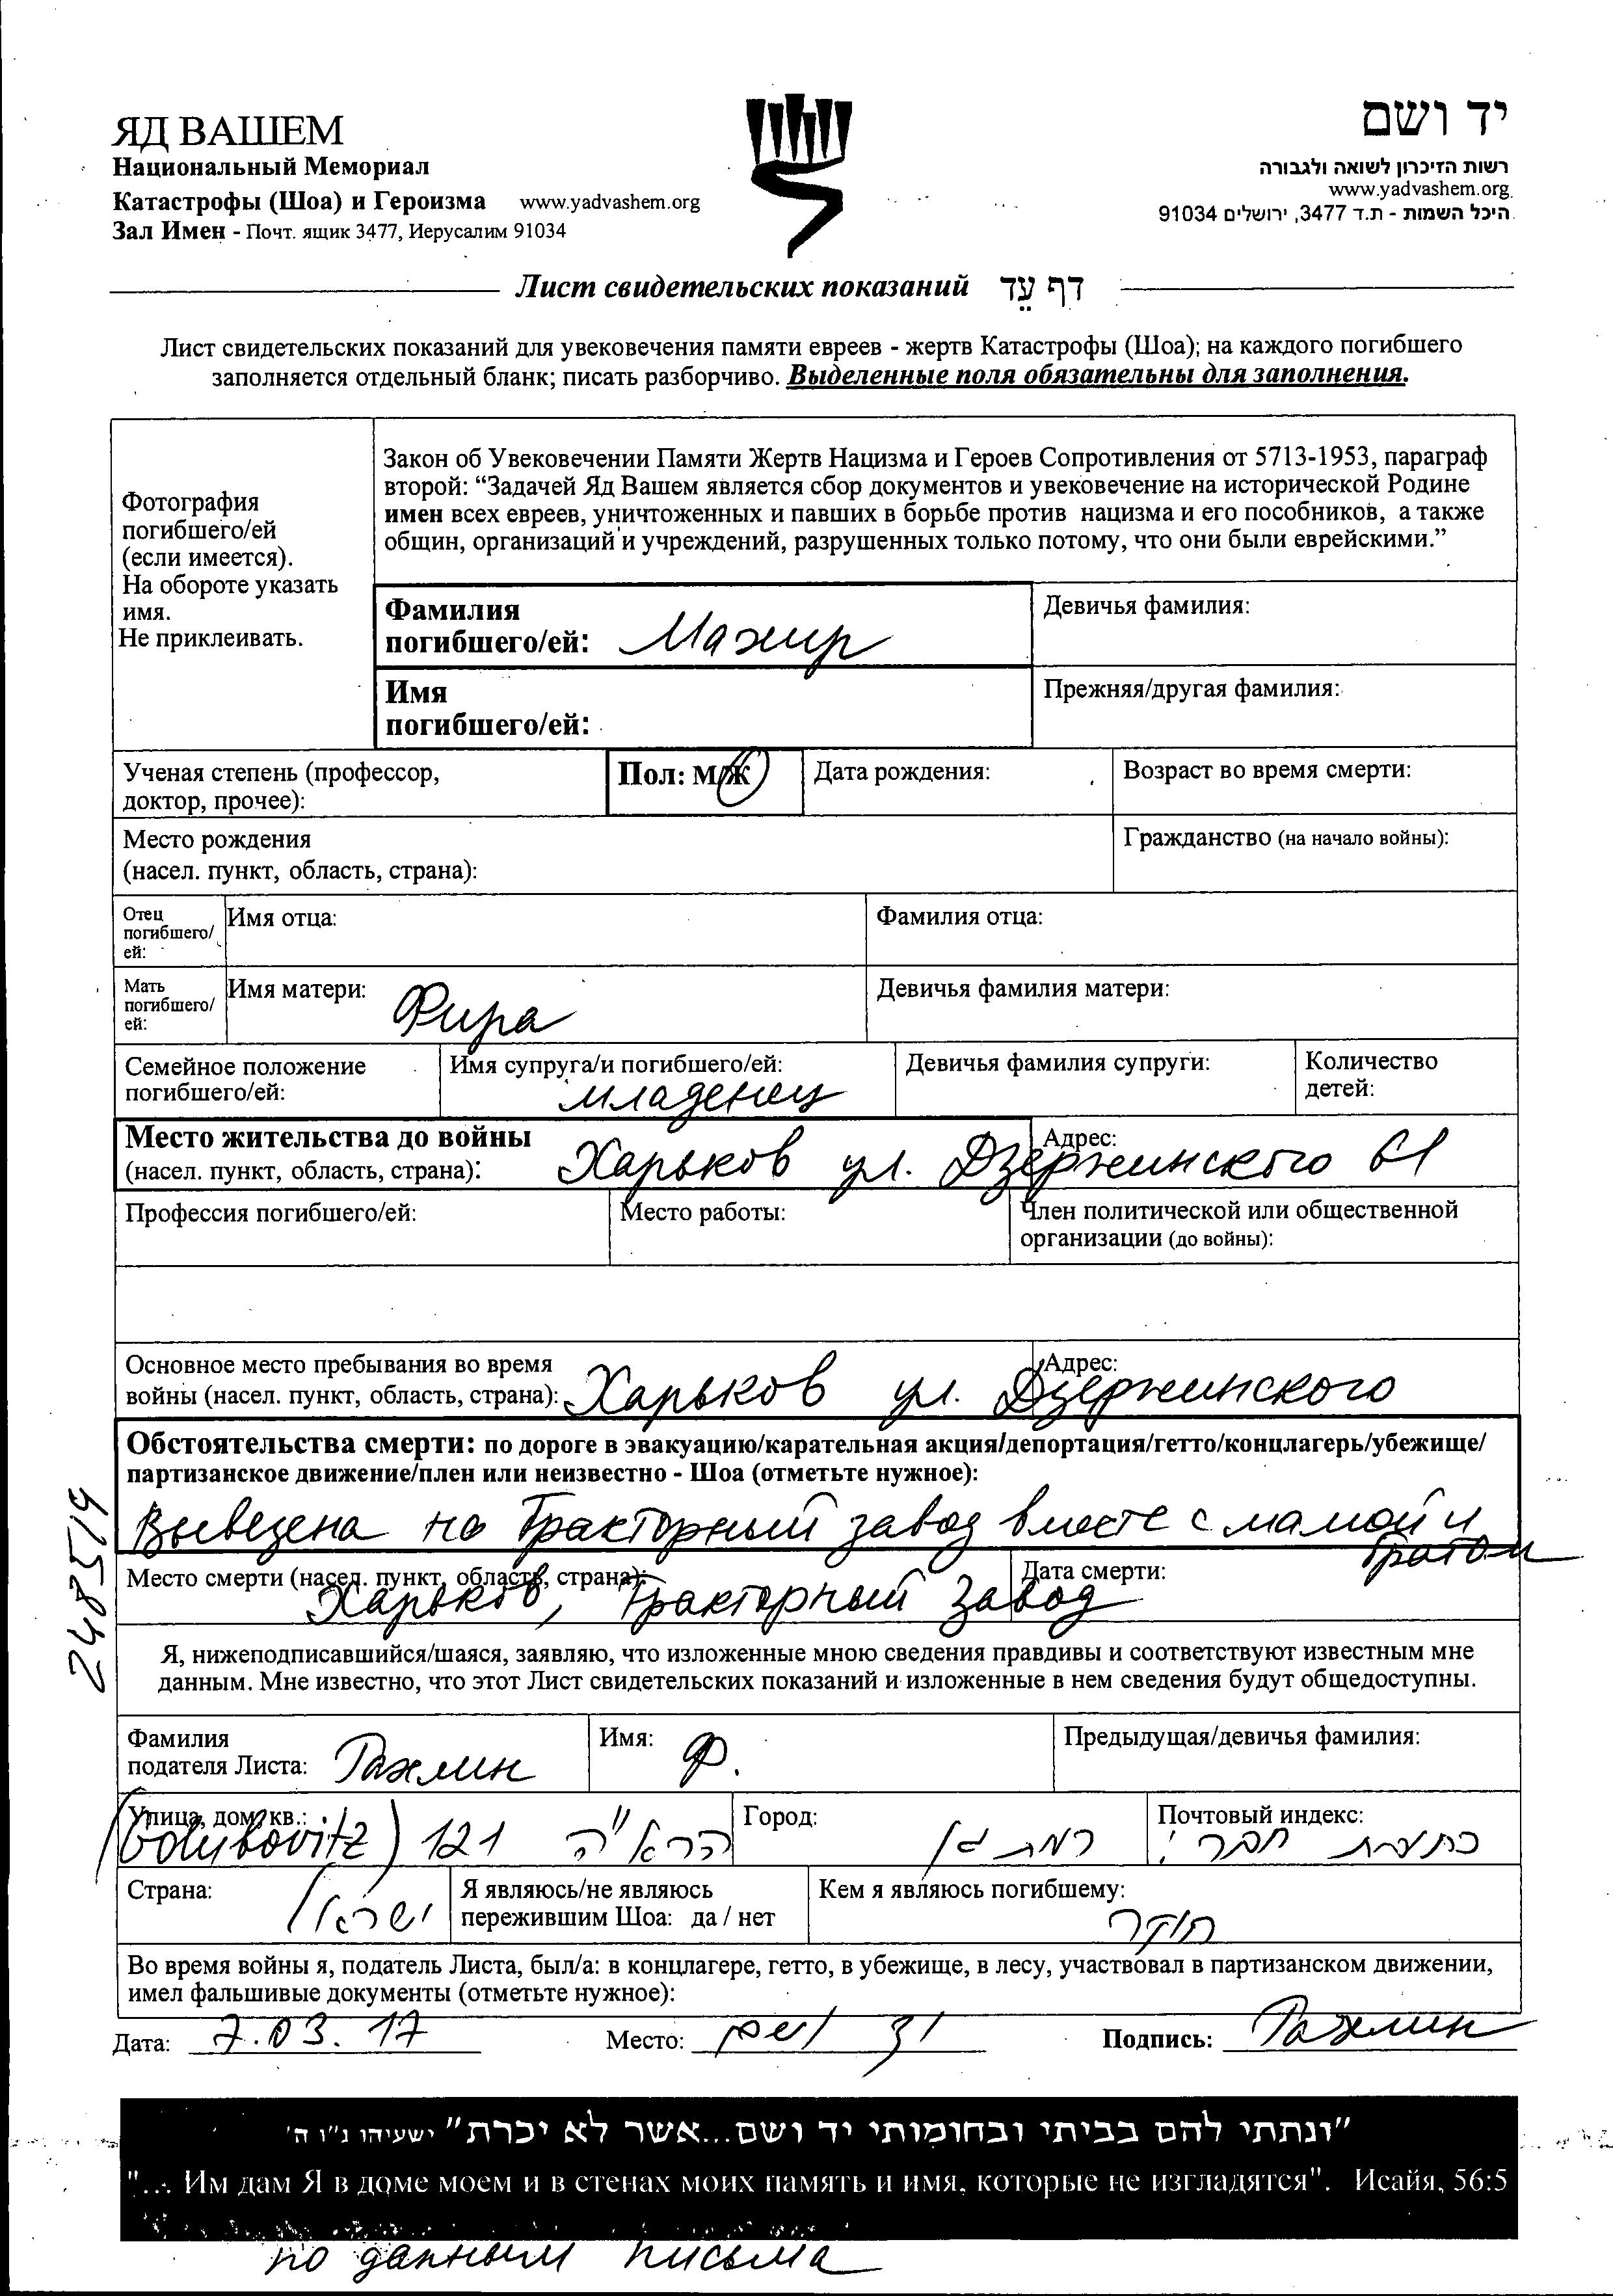 ЯД ВАШЕМ
Национальный Мемориал
Катастрофы (Шоа) и Героизма www.yadvashem.org
Зал Имен - Почт. ящик 3477, Иерусалим 91034
יד ושם
רשות הזיכרון לשואה ולגבורה
www.yadvashem.org
היכל השמות - ת.ד 3477, ירושלים 91034
Лист свидетельских показаний דף עֵד
Лист свидетельских показаний для увековечения памяти евреев - жертв Катастрофы (Шоа); на каждого погибшего
заполняется отдельный бланк; писать разборчиво. Выделенные поля обязательны для заполнения.
Фотография
погибшего/ей
(если имеется).
На обороте указать
имя.
Не приклеивать.
Закон об Увековечении Памяти Жертв Нацизма и Героев Сопротивления от 5713-1953, параграф
второй: “Задачей Яд Вашем является сбор документов и увековечение на исторической Родине
имен всех евреев, уничтоженных и павших в борьбе против нацизма и его пособников, а также
общин, организаций и учреждений, разрушенных только потому, что они были еврейскими.”
Фамилия
погибшего/ей: Мажир
Девичья фамилия:
Имя
погибшего/ей:
Прежняя/другая фамилия:
Ученая степень (профессор,
доктор, прочее):
Пол: М/Ж
Дата рождения:
Возраст во время смерти:
Место рождения
(насел. пункт, область, страна):
Гражданство (на начало войны):
Отец
погибшего/
ей:
Имя отца:
Фамилия отца:
Мать
погибшего/
ей:
Имя матери: Фира
Девичья фамилия матери:
Семейное положение
погибшего/ей:
Имя супруга/и погибшего/ей:
младенец
Девичья фамилия супруги:
Количество
детей:
Место жительства до войны
(насел. пункт, область, страна): Харьков ул. Дзержинского 61
Адрес:
Профессия погибшего/ей:
Место работы:
Член политической или общественной
организации (до войны):
Основное место пребывания во время
войны (насел. пункт, область, страна): Харьков ул. Дзержинского
Адрес:
Обстоятельства смерти: по дороге в эвакуацию/карательная акция/депортация/гетто/концлагерь/убежище/
партизанское движение/плен или неизвестно - Шоа (отметьте нужное):
Вывезена на Тракторный завод вместе с мамой и
братом
Место смерти (насел. пункт, область, страна):
Харьков, Тракторный завод
Дата смерти:
248519
Я, нижеподписавшийся/шаяся, заявляю, что изложенные мною сведения правдивы и соответствуют известным мне
данным. Мне известно, что этот Лист свидетельских показаний и изложенные в нем сведения будут общедоступны.
Фамилия
подателя Листа: Рахлин
Имя: Ф.
Предыдущая/девичья фамилия:
Улица, дом, кв.:
(Golubovitz) 121 הרא"ה
Город:
רמת גן
Почтовый индекс:
Страна:
ישראל
Я являюсь/не являюсь
пережившим Шоа: да / нет
Кем я являюсь погибшему:
Во время войны я, податель Листа, был/а: в концлагере, гетто, в убежище, в лесу, участвовал в партизанском движении,
имел фальшивые документы (отметьте нужное):
Дата: 7.03.17 Место: יד ושם Подпись: Рахлин
"ונתתי להם בביתי ובחומותי יד ושם...אשר לא יכרת" ישעיהו נ"ו ה'
"... Им дам Я в доме моем и в стенах моих память и имя, которые не изгладятся". Исайя, 56:5
по данным письма